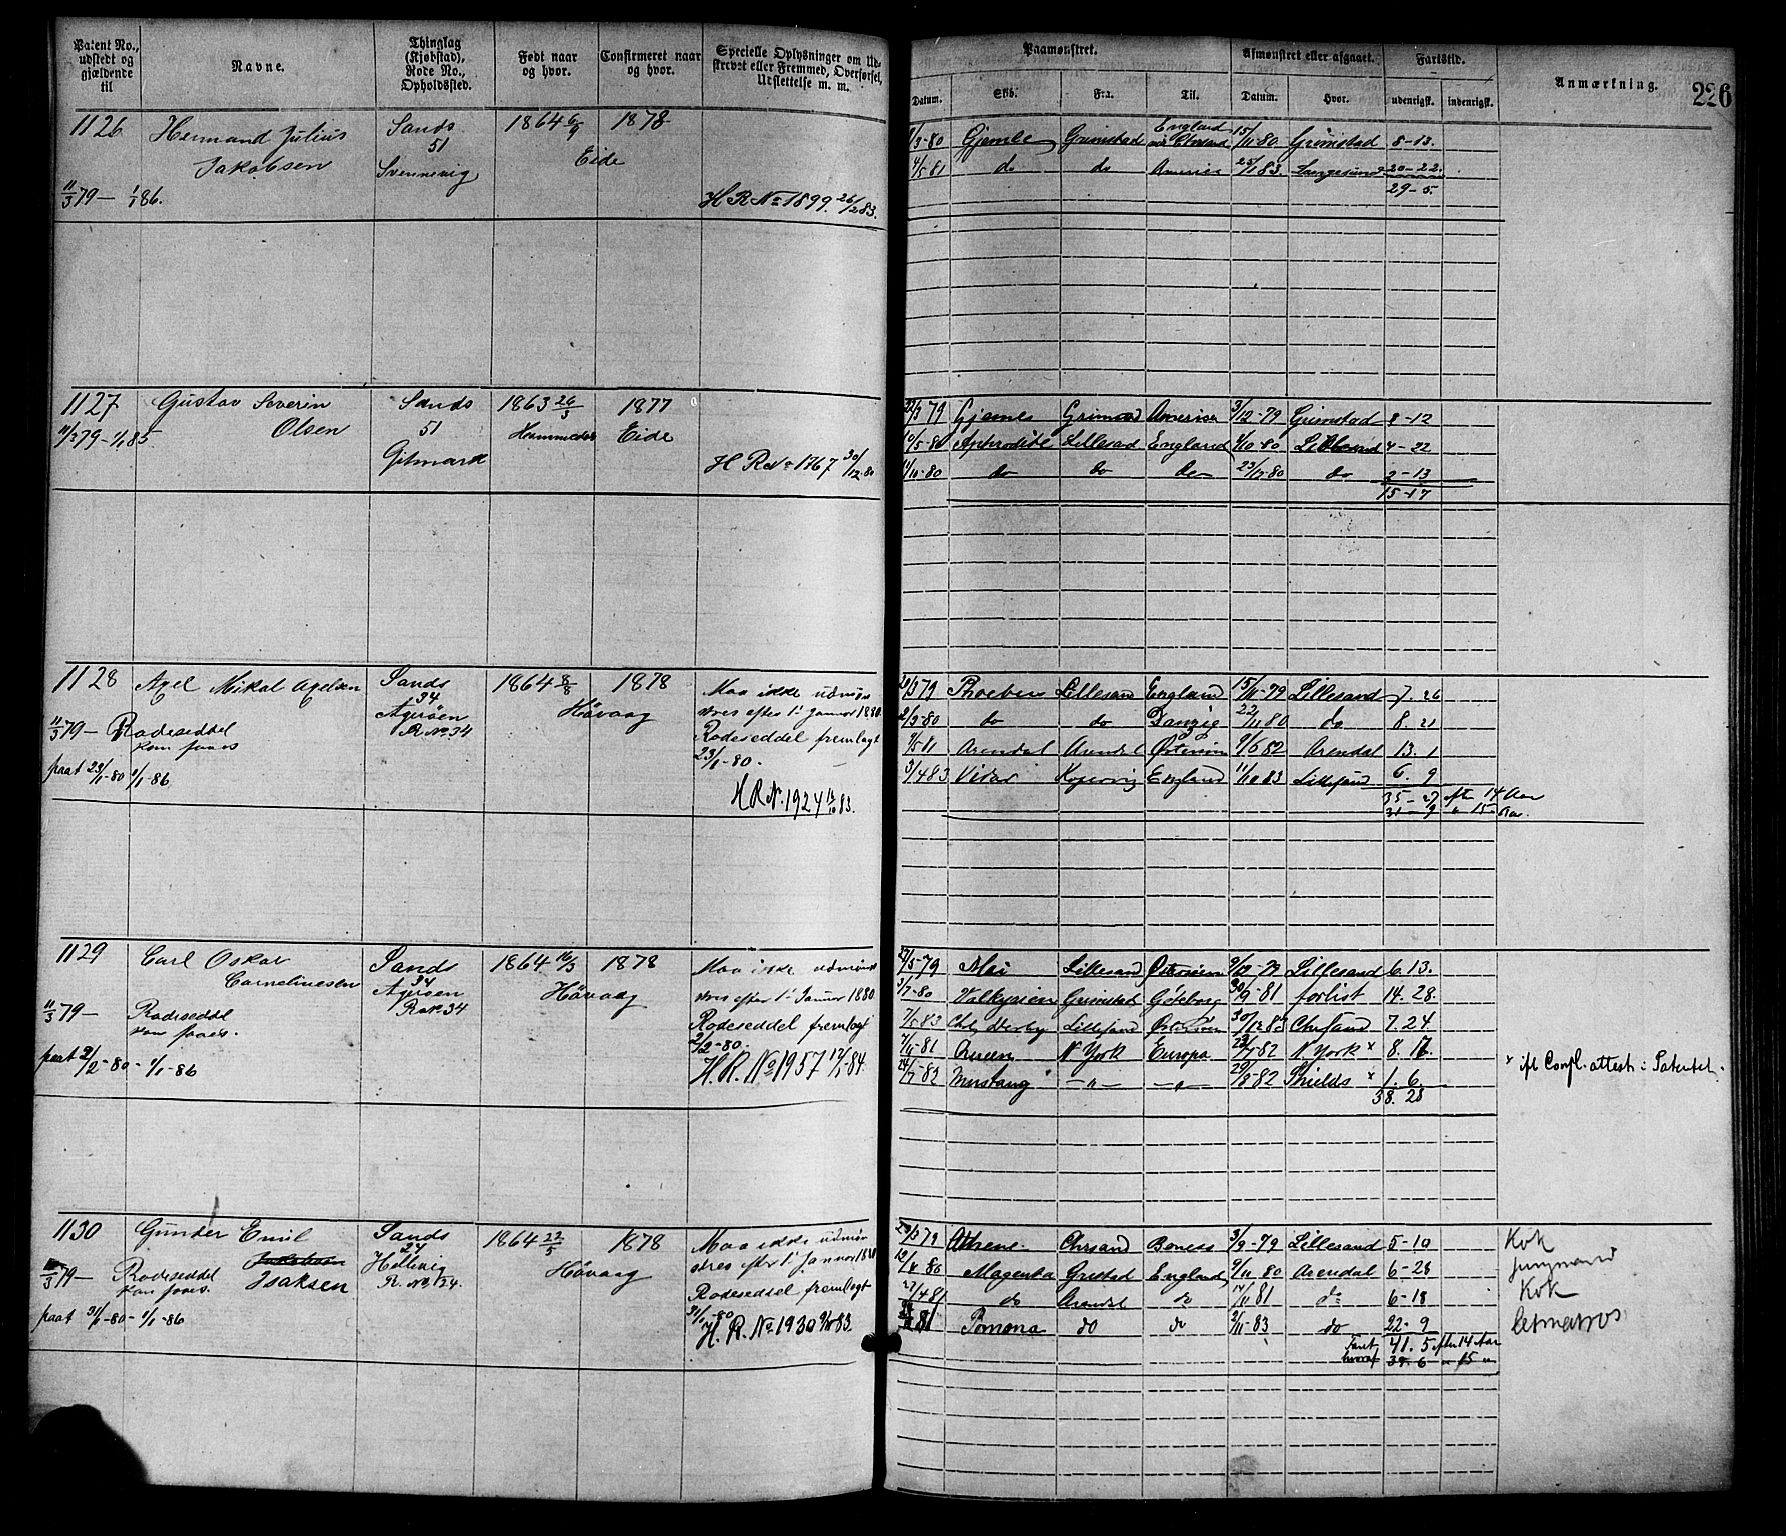 Patent No., udstedt og gjældende til
Navne.
Thinglag (Kjøbstad), Rode No., Opholdssted.
Født naar og hvor.
Confirmeret naar og hvor.
Specielle Oplysninger om Udskrevet eller Fremmed, Overførsel, Udslettelse m. m.
Paamønstret.
Datum. Skib. Fra. Til.
Afmønstret eller afgaaet.
Datum. Hvor.
Fartstid.
udenrigsk. indenrigsk.
Anmærkning.
226
1126 Hermand Julius Sands 1864 6/9 1878
Jakobsen 51 Eide
11/3 79 – 1/1 86. Svennevig H R No 1899. 26/2 83.
1/3-80 Gjembe Grimstad England 15/11-80 Grimstad 8-13.
4/5 81 do do America 25/1 83. Langesund 20-22.
29-5.
1127 Gustav Severin Sands 1863 26/3 1877
11/3 79 – 1/1 85 Olsen 51 Eide
Gitmark H R No 1767 30/12-80
22/3 79 Gjembe Grimstad America 3/12-79 Grimstad 8-12
10/5-80 Aphrodite Lillesad England 1/10-80 Lillesand 4-22
11/10-80 do do do 23/12-80 do 2-13
15-17
1128 Axel Mikal Axelsen Sands 1864 8/8 1878 Maa ikke udmøn
34 Høvaag stres efter 1ste Januar 1880.
11/3 79 – Rodeseddel Agerøen Rodeseddel fremlagt
kom paaes R No 34 23/1-80.
paat 23/1-80 1/1-86 H R No. 1924 11/10 83.
20/3 79 Phoebus Lillesan England 15/11-79 Lillesand 7. 26
2/3-80 do do Danzig 22/11 80 do 8. 21
9/5 81 Arendal Arendal Østersøen 9/6 82 Arendal 13. 1
3/4 83 Vidar England 11/10 83 Lillesand 6. 9
35-27 efter 14 Aar
31-9 " 15 Aar.
1129 Carl Oskar Sands 1864 16/3 1878 Maa ikke udmøn
Corneliussen 34 Høvaag stres efter 1ste Januar 1880
11/3 79 – Rodeseddel Agerøen Rodeseddel fremlagt
kom paaes. R No 34 2/2-80.
paat 2/2-80 – 1/1-86 H. R. No 1957 12/1-84.
27/5 79 Mai Lillesand Østersøen 9/12-79 Lillesand 6. 13.
3/7-80 Valkyrien Grimstad Göteborg 30/9-81 forlist 14. 28.
7/5 83 Chs Derby Lillesand Østersøen 30/12 83 Chrsand 7. 24.
7/11-81 Queen N York Europa 23/7-82 N. York x 8. 17.
24/7-82 Mustang – " – – " – 29/8-82 Shields x 1. 6
38. 28
x ifl Confl. attest i Patentet.
1130 Gunder Emil Sands 1864 22/5 1878 Maa ikke udmøn
Jakobsen 34 Høvaag stres efter 1ste Januar 1880
11/3 79 – Rodeseddel Isaksen Hellevig Rodeseddel fremlagt
kom paaes. R. No 34. 31/1-80
paat 31/1-80 – 1/1-86 H. R. No 1930 83.
29/3 79 Athene Chrsand 3/9-79 Lillesand 5-10 Kok
12/4 80 Magenta Grstad England 9/11 80 Arendal 6-28 jungmand
27/4 81 do Arendal do 14/11 81 do 6-18 Kok
81 Pomona do do 2/11-83 do 22-9 Letmatros
Faret 41. 5 efter 14 Aar
hvoraf 39. 6 " 15 "